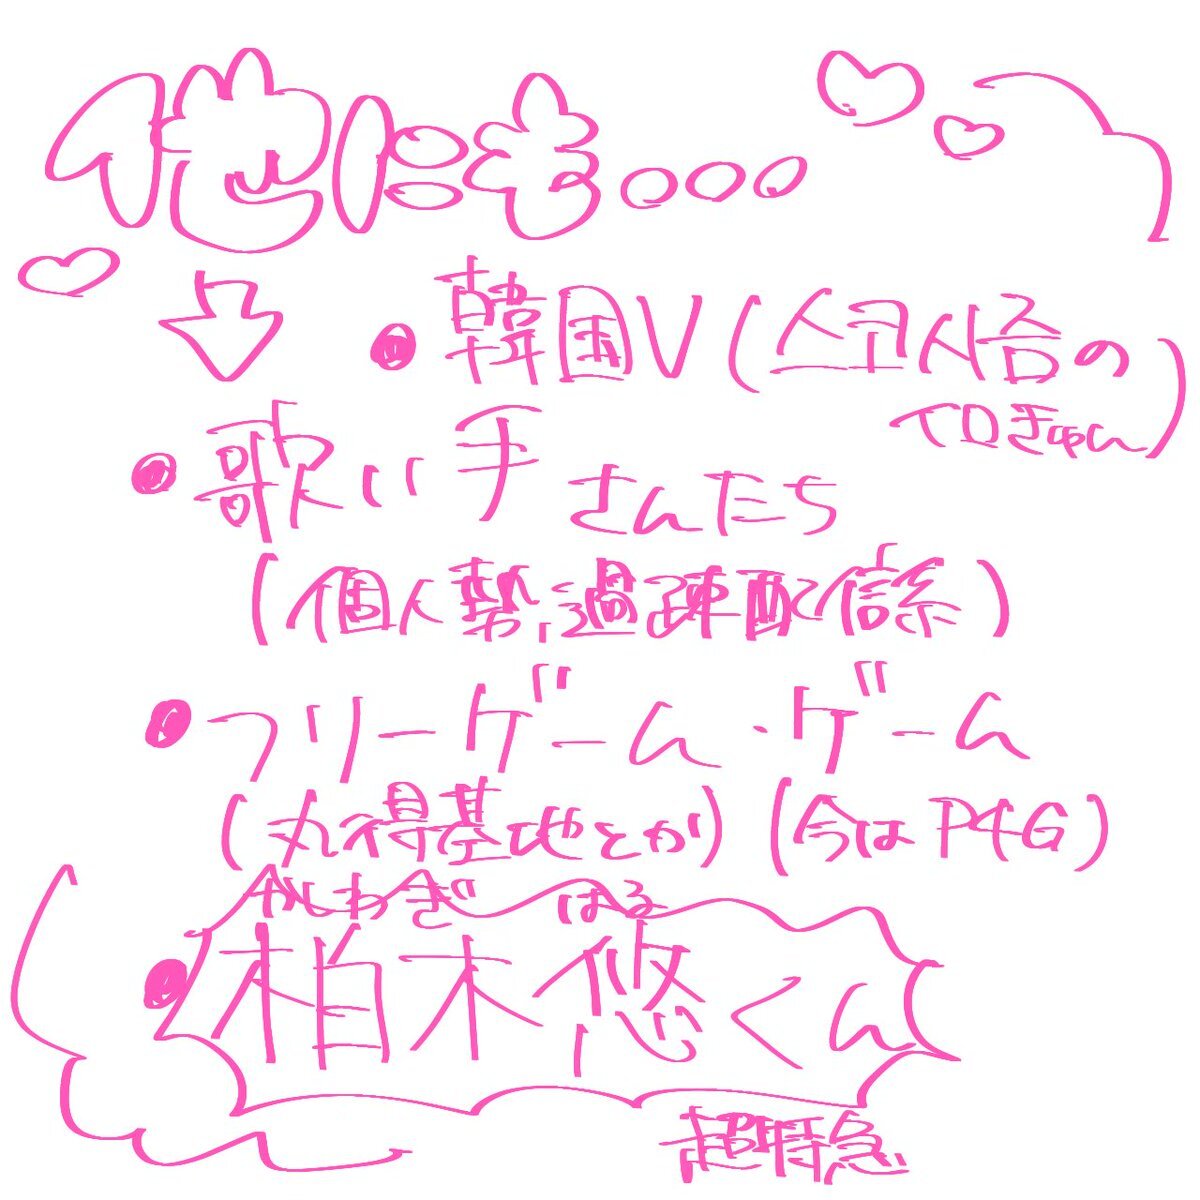 他にも...
・韓国V(스코시즘の
イロきゅん)
・歌い手さんたち
(個人勢,過疎配信系)
・フリーゲーム・ゲーム
(丸得基地とか)(今はP4G)
かしわぎ はる
・柏木悠くん
超特急